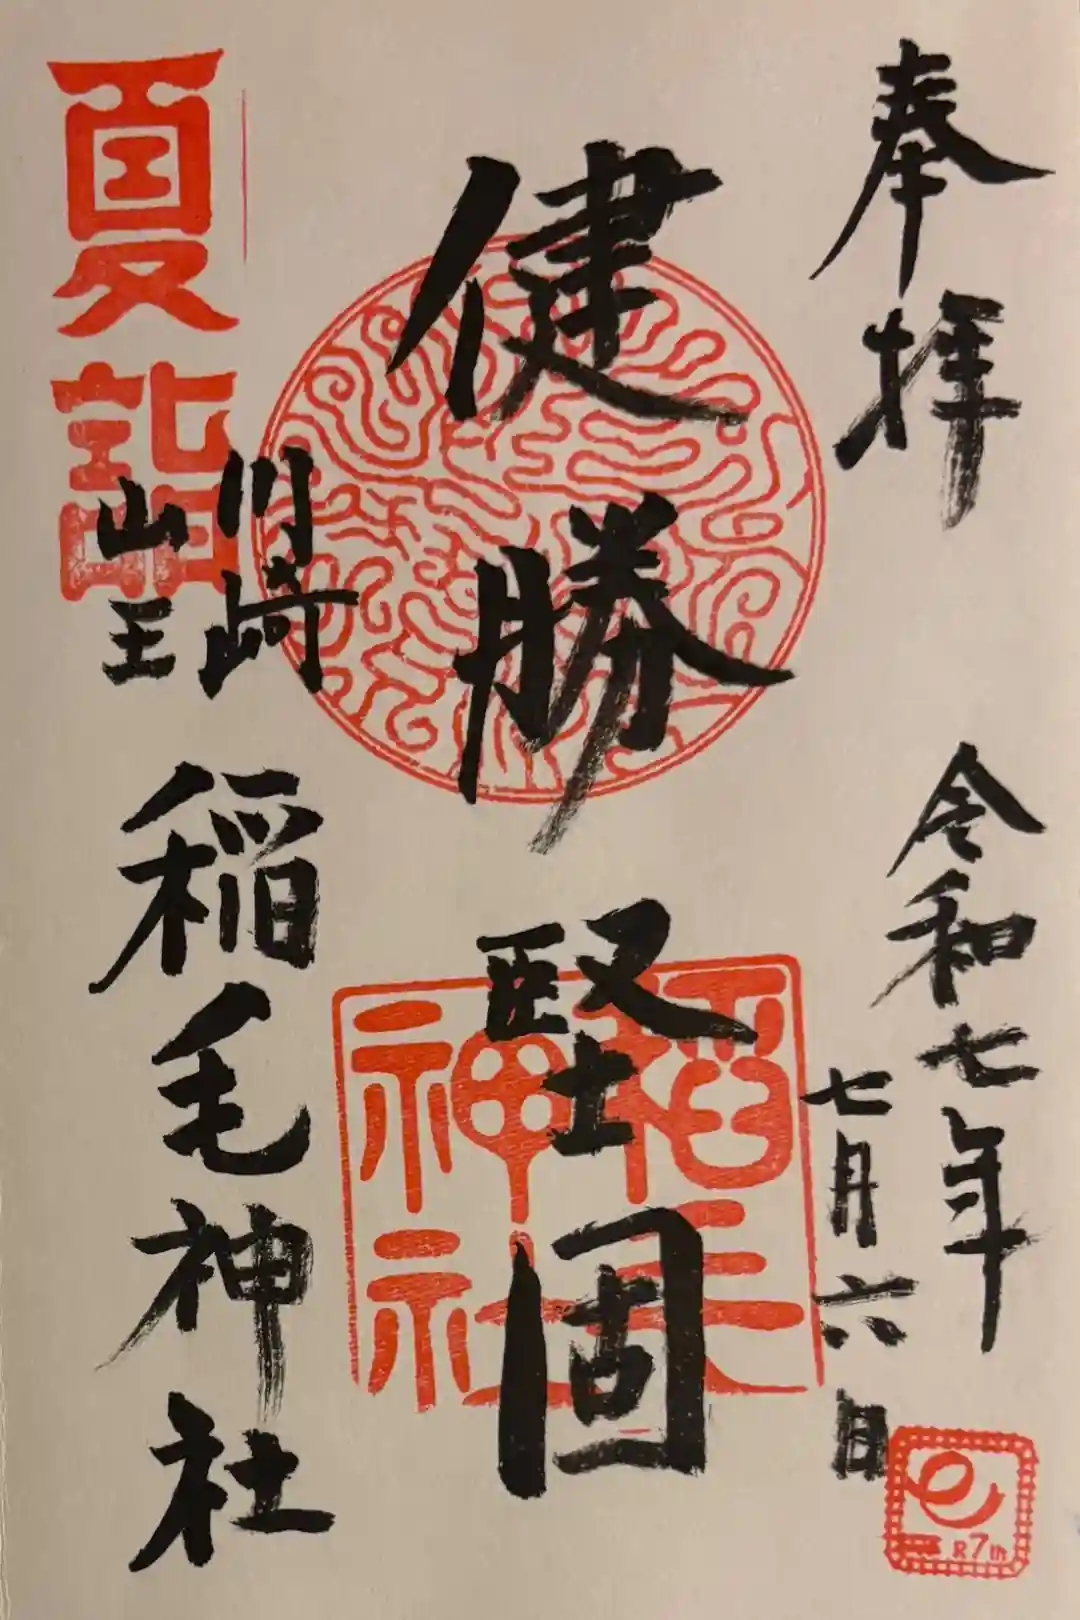 奉拝
令和七年
七月六日
健勝
堅固
夏詣
川崎
山王
稲毛神社
稲毛
神社
R7th